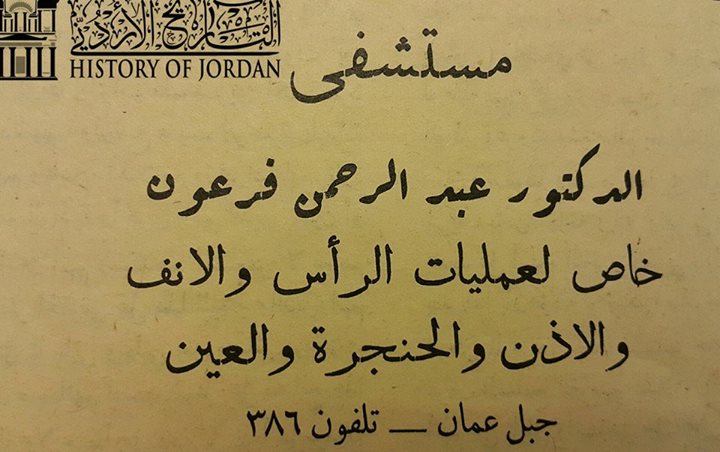 التاريخ الأردني
HISTORY OF JORDAN
مستشفى
الدكتور عبد الرحمن فرعون
خاص لعمليات الرأس والانف
والاذن والحنجرة والعين
جبل عمان — تلفون ٣٨٦